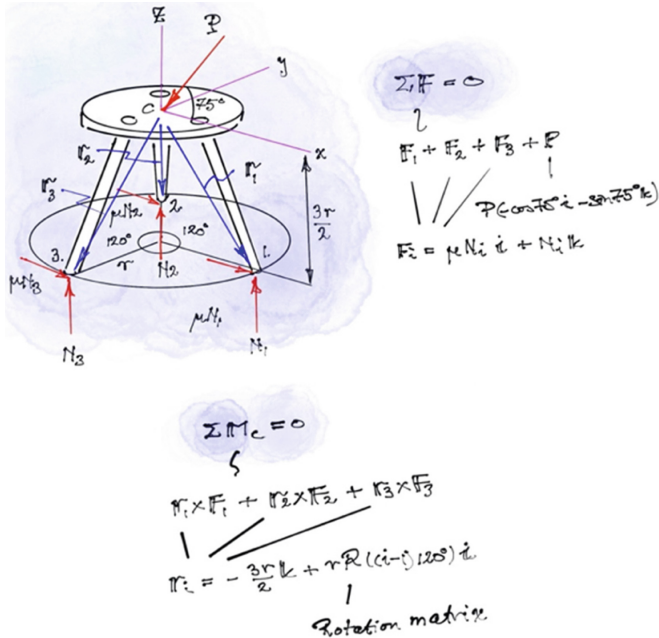 Z
P
y
C
75°
x
r₂
r₁
r₃
3r/2
μN₂
2
120°
120°
3.
1.
r
N₂
μN₃
μN₁
N₃
N₁
ΣF = 0
F₁ + F₂ + F₃ + P
P(-cos75° i - sin75° k)
Fᵢ = μNᵢ i + Nᵢ k
ΣM_c = 0
r₁×F₁ + r₂×F₂ + r₃×F₃
rᵢ = - 3r/2 k + r R((i-1)120°) i
Rotation matrix